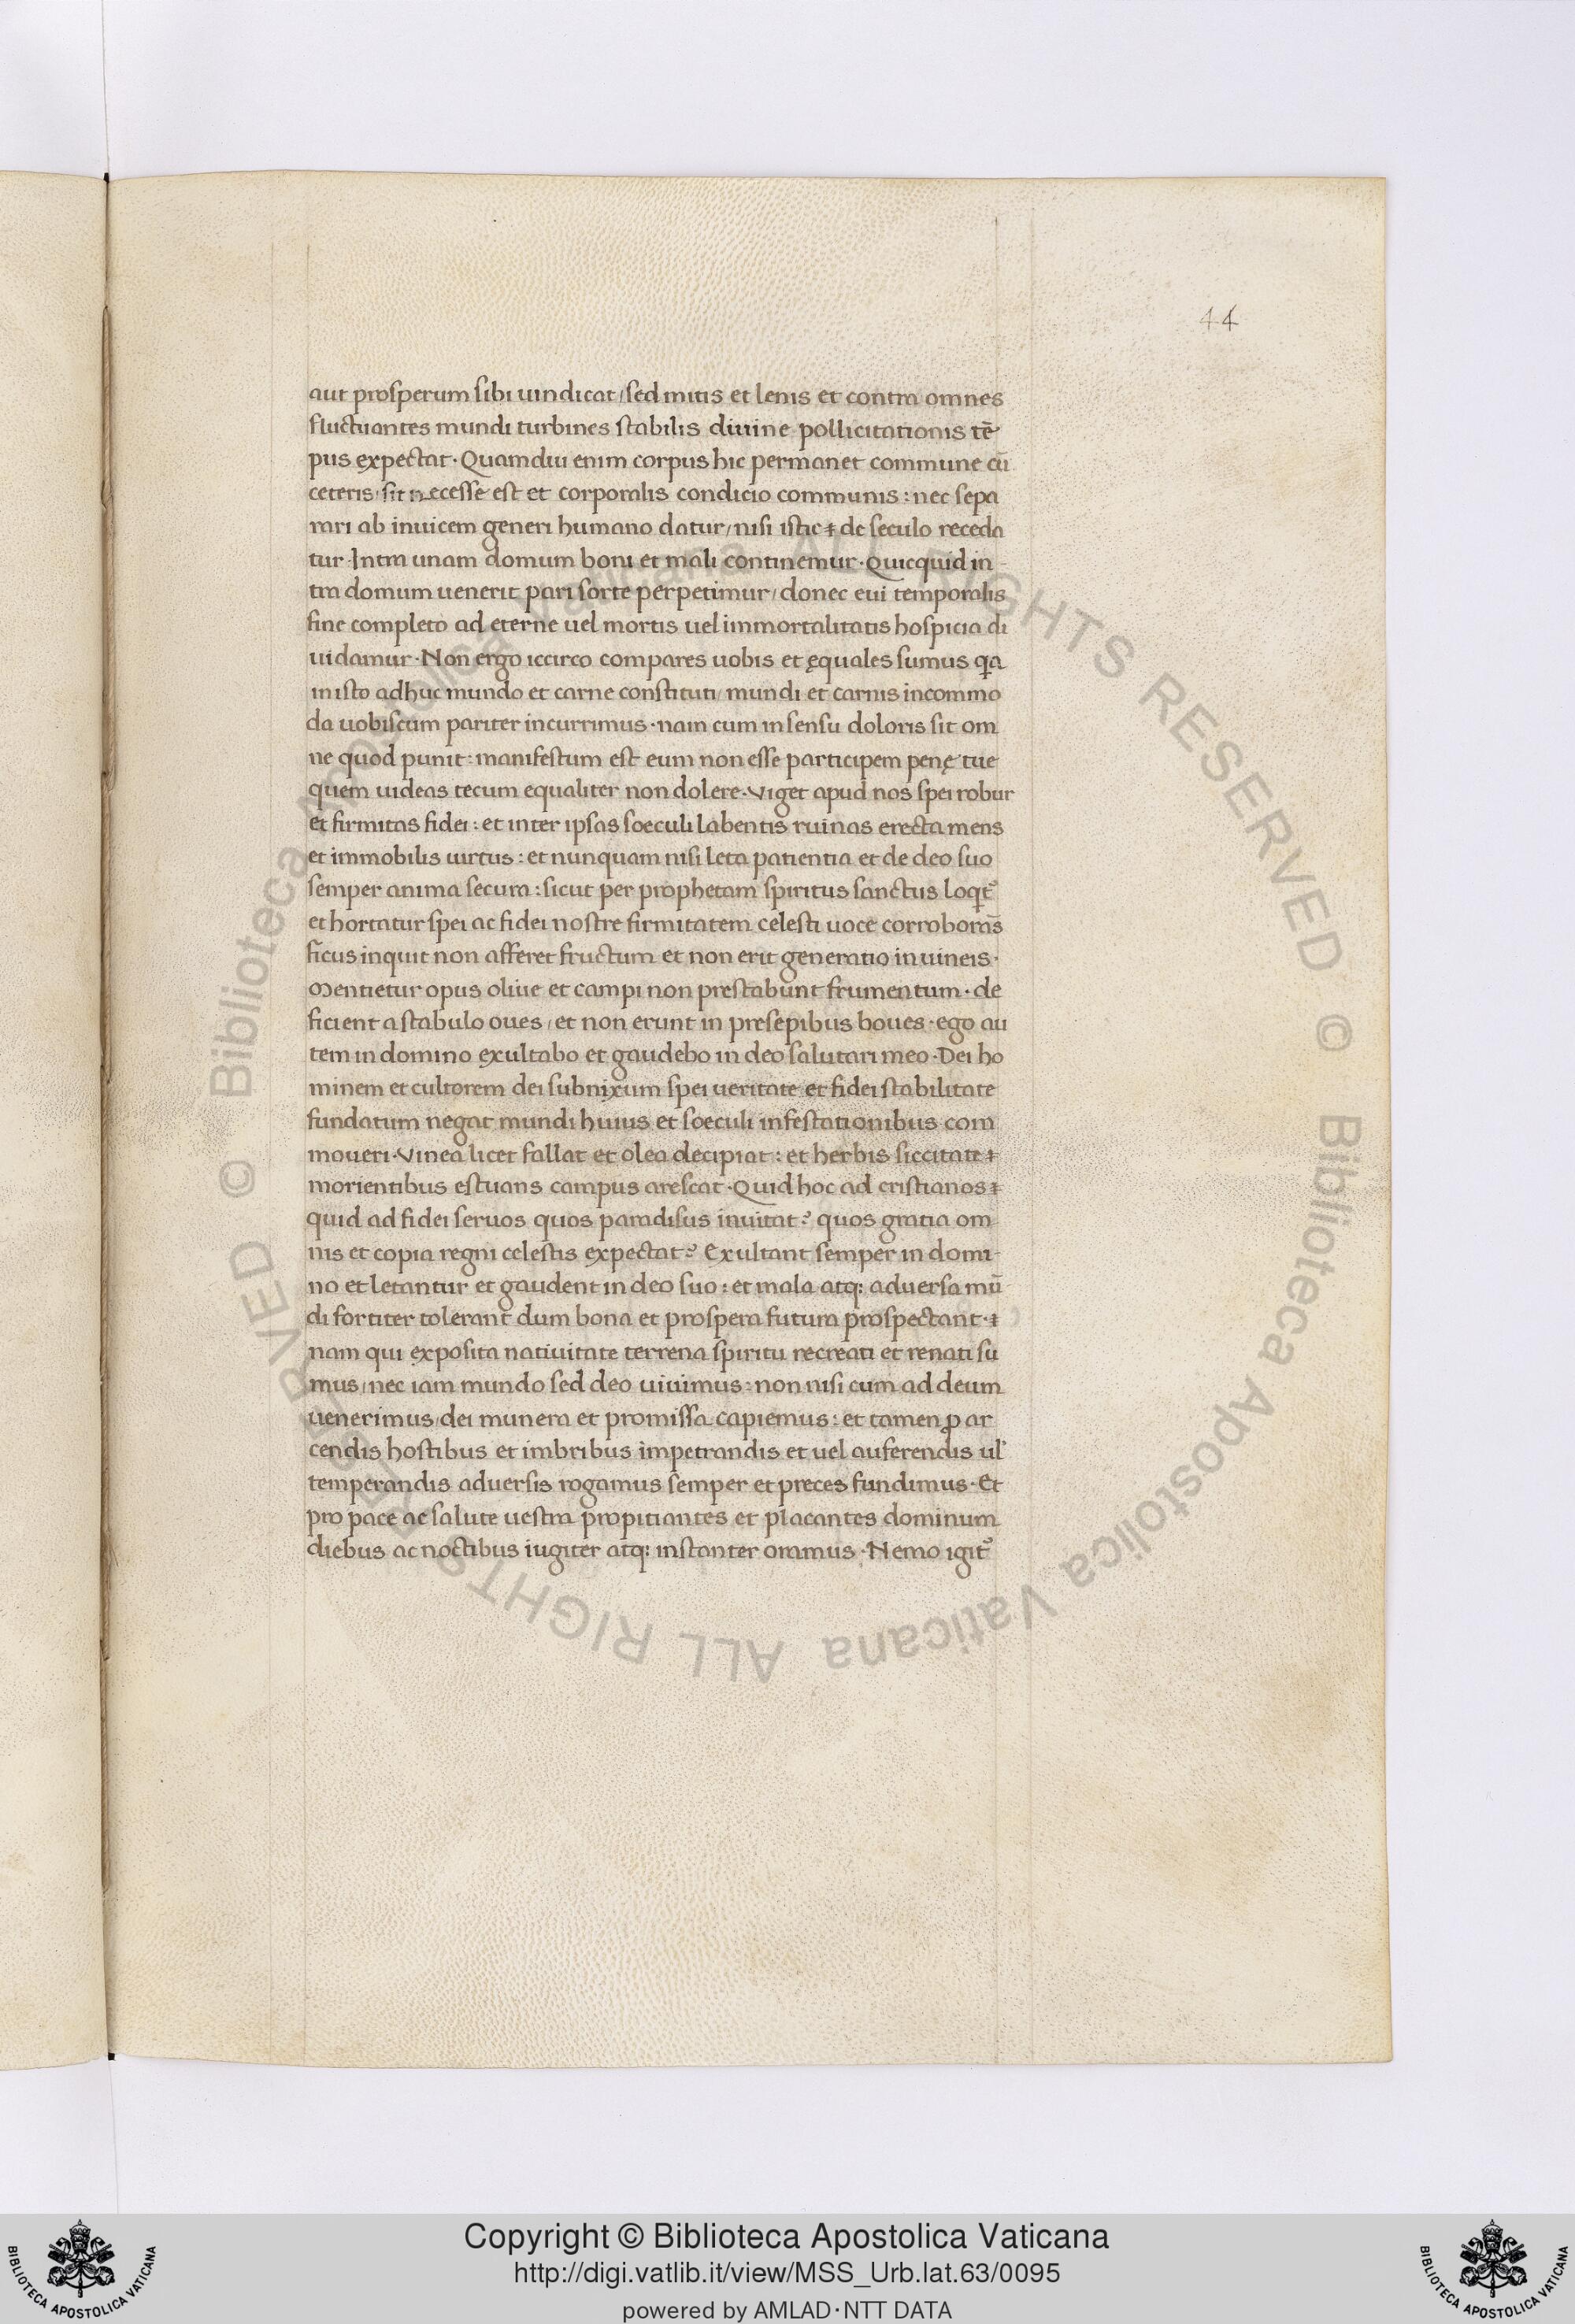 44
aut prosperum sibi uindicat / sed mitis et lenis et contra omnes
fluctuantes mundi turbines stabilis diuine pollicitationis tē
pus expectat · Quamdiu enim corpus hic permanet commune cū
ceteris / sit necesse est et corporalis condicio communis : nec sepa
rari ab inuicem generi humano datur / nisi istic de seculo receda
tur · Intra unam domum boni et mali continemur · Quicquid in
tra domum uenerit pari sorte perpetimur / donec eui temporalis
fine completo ad eterne uel mortis uel immortalitatis hospicia di
uidamur · Non ergo iccirco compares uobis et ęquales sumus qa
in isto adhuc mundo et carne constituti / mundi et carnis incommo
da uobiscum pariter incurrimus · nam cum in sensu doloris sit om
ne quod punit : manifestum est eum non esse participem penę tue
quem uideas tecum equaliter non dolere · Viget apud nos spei robur
et firmitas fidei : et inter ipsas soeculi labentis ruinas erecta mens
et immobilis uirtus : et nunquam nisi leta patientia et de deo suo
semper anima secura : sicut per prophetam spiritus sanctus loqt᷒
et hortatur spei ac fidei nostre firmitatem celesti uoce corroborās
ficus inquit non afferet fructum et non erit generatio in uineis ·
Mentietur opus oliue et campi non prestabunt frumentum · de
ficient a stabulo oues / et non erunt in presepibus boues · ego au
tem in domino exultabo et gaudebo in deo salutari meo · Dei ho
minem et cultorem dei subnixum spei ueritate et fidei stabilitate
fundatum negat mundi huius et soeculi infestationibus com
moueri · Vinea licet fallat et olea decipiat : et herbis siccitate
morientibus estuans campus arescat · Quid hoc ad cristianos
quid ad fidei seruos quos paradisus inuitat ? quos gratia om
nis et copia regni celestis expectat ? Exultant semper in domi-
no et letantur et gaudent in deo suo : et mala atq; aduersa mū
di fortiter tolerant dum bona et prospera futura prospectant ·
nam qui exposita natiuitate terrena spiritu recreati et renati su
mus / nec iam mundo sed deo uiuimus : non nisi cum ad deum
uenerimus / dei munera et promissa capiemus : et tamen ꝓ ar
cendis hostibus et imbribus impetrandis et uel auferendis ul᷒
temperandis aduersis rogamus semper et preces fundimus · Et
pro pace ac salute uestra propitiantes et placantes dominum
diebus ac noctibus iugiter atq; instanter oramus · Nemo igit᷒
© Biblioteca Apostolica Vaticana ALL RIGHTS RESERVED © Biblioteca Apostolica Vaticana ALL RIGHTS RESERVED
BIBLIOTECA APOSTOLICA VATICANA
Copyright © Biblioteca Apostolica Vaticana
http://digi.vatlib.it/view/MSS_Urb.lat.63/0095
powered by AMLAD·NTT DATA
BIBLIOTECA APOSTOLICA VATICANA